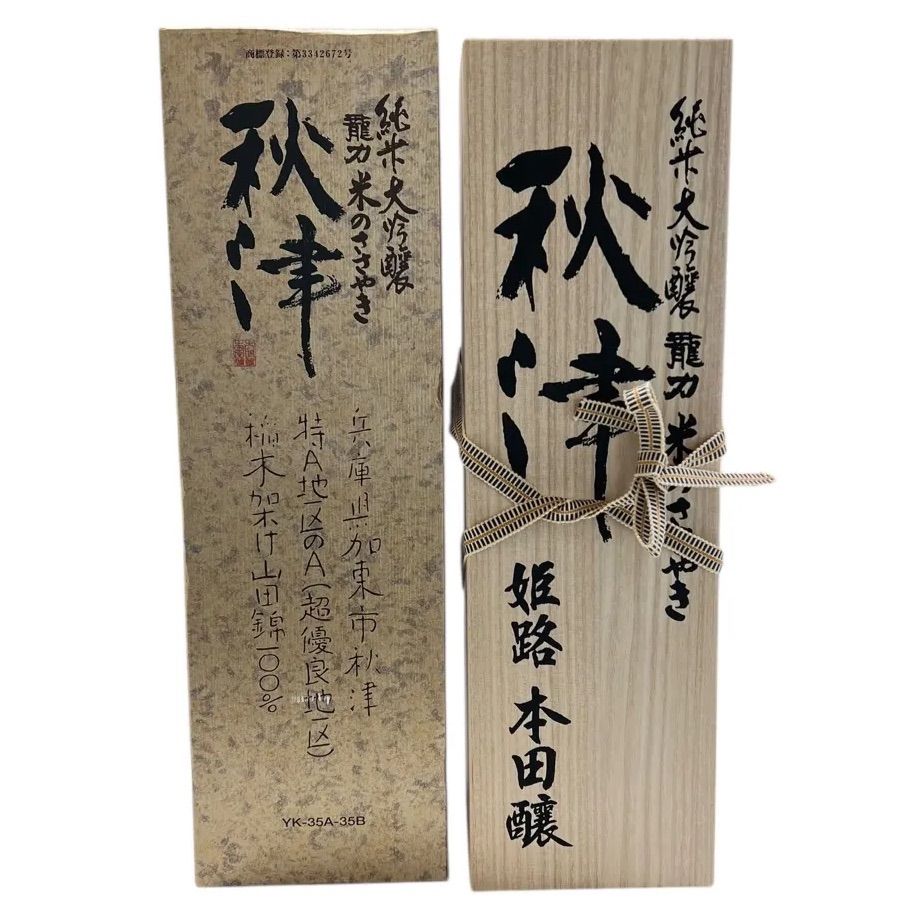 商標登録:第3342672号
純米大吟醸
龍力 米のささやき
秋津
兵庫県加東市秋津
特A地区のA(超優良地区)
稲木架け山田錦一〇〇%
YK-35A-35B
純米大吟醸 龍力 米のささやき
秋津
姫路 本田醸